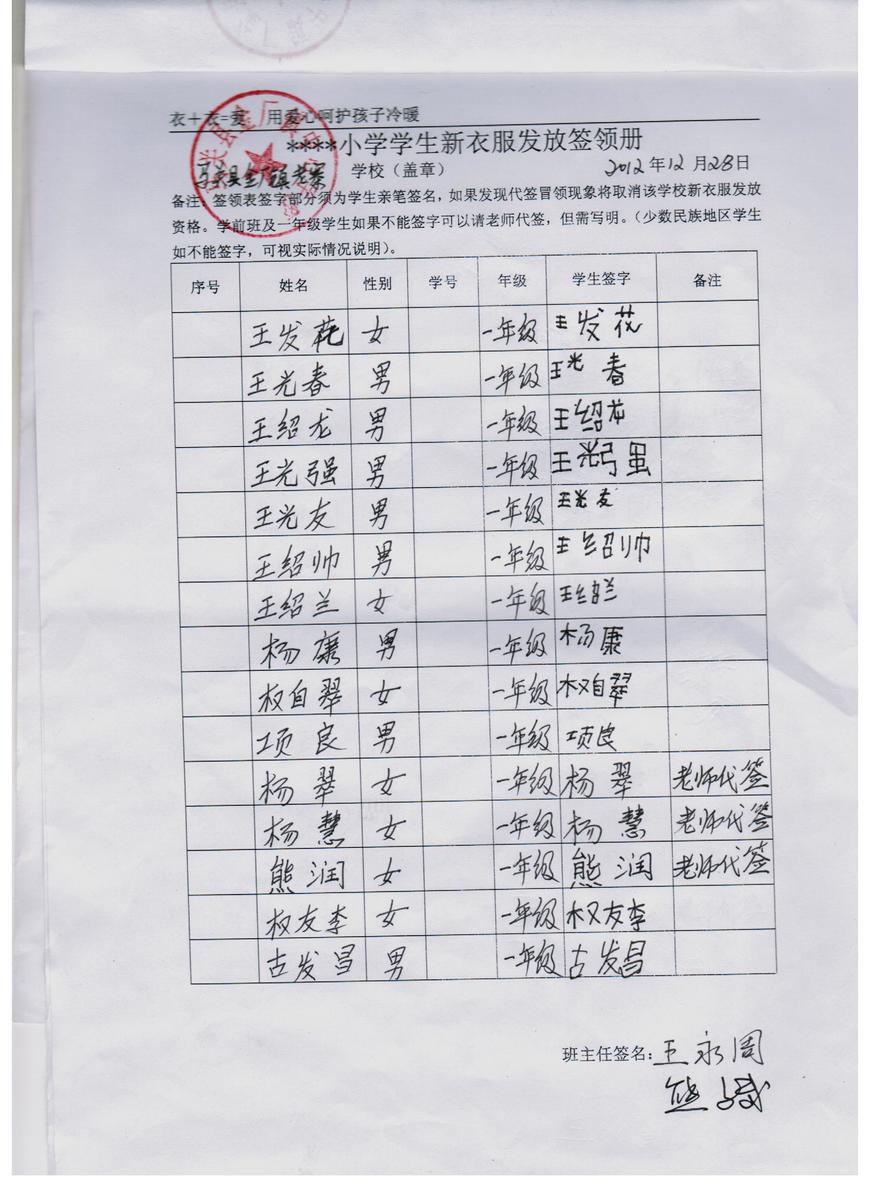 衣+衣=爱 用爱心呵护孩子冷暖
****小学学生新衣服发放签领册
马关县金厂镇老寨 学校（盖章） 2012年12月28日
备注：签领表签字部分须为学生亲笔签名，如果发现代签冒领现象将取消该学校新衣服发放
资格。学前班及一年级学生如果不能签字可以请老师代签，但需写明。（少数民族地区学生
如不能签字，可视实际情况说明）。
序号 姓名 性别 学号 年级 学生签字 备注
王发花 女 一年级 王发花
王光春 男 一年级 王光春
王绍龙 男 一年级 王绍龙
王光强 男 一年级 王光强
王光友 男 一年级 王光友
王绍帅 男 一年级 王绍帅
王绍兰 女 一年级 王绍兰
杨康 男 一年级 杨康
权自翠 女 一年级 权自翠
项良 男 一年级 项良
杨翠 女 一年级 杨翠 老师代签
杨慧 女 一年级 杨慧 老师代签
熊润 女 一年级 熊润 老师代签
权友李 女 一年级 权友李
古发昌 男 一年级 古发昌
班主任签名：王永周
熊